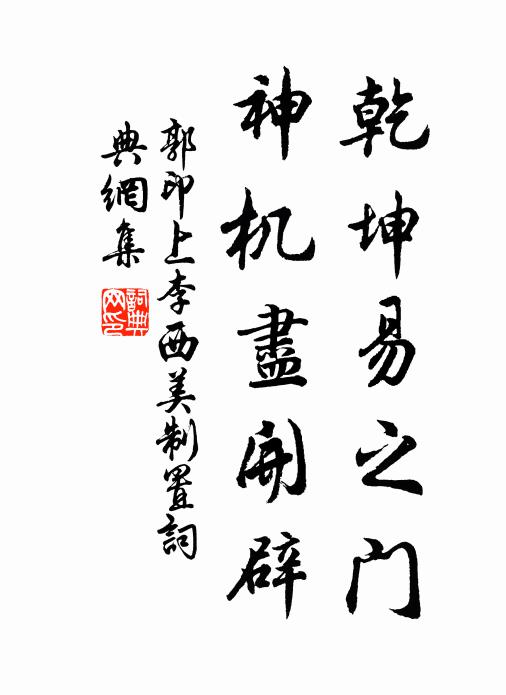 乾坤易之门
神机盡開辟
郭印上李西美制置詞
典網集
詞典
网印